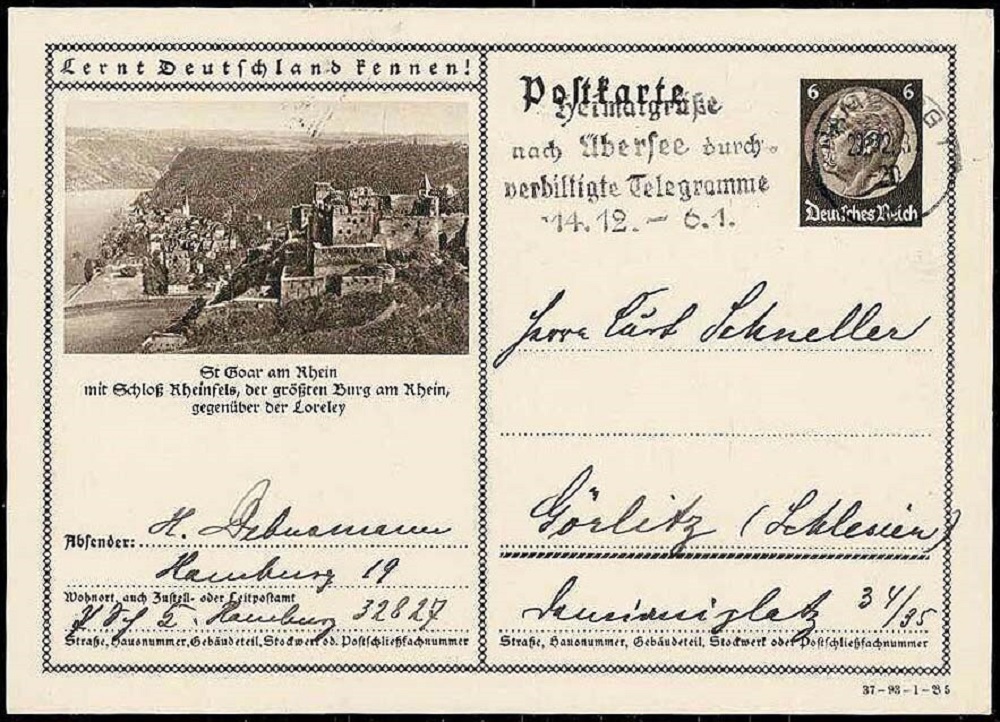 Lernt Deutschland kennen!
St Goar am Rhein
mit Schloß Rheinfels, der größten Burg am Rhein,
gegenüber der Loreley
Absender: H. Debusmann
Hamburg 19
Wohnort, auch Zustell- oder Leitpostamt
Hamburg 32827
Straße, Hausnummer, Gebäudeteil, Stockwerk od. Postschließfachnummer
Postkarte
Heimatgrüße
nach Übersee durch
verbilligte Telegramme
14.12. – 6.1.
6 6
Deutsches Reich
Herrn Curt Schneller
Görlitz (Schlesien)
Demianiplatz 34/35
Straße, Hausnummer, Gebäudeteil, Stockwerk oder Postschließfachnummer
37–93–1–B5